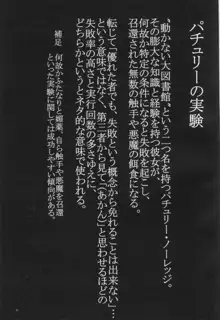 パチュリーの実験
〝動かない大図書館〟という二つ名を持つパチュリー・ノーレッジ。
その膨大な知識と経験を持つ彼女が、
何故か特定の条件になると失敗を起こし、
召還された無数の触手や悪魔の餌食になる。
転じて「優れた者でも、失敗という概念から免れることは出来ない」
という意味ではなく、第三者から見て「あかん」と思わせるほどの
失敗率の高さと実行回数の多さゆえに、
どちらかというとネガティブな意味で使われる。
補足 何故かふたなりと媚薬、自ら触手や悪魔を召還
といった実験に関しては成功しやすい傾向がある。